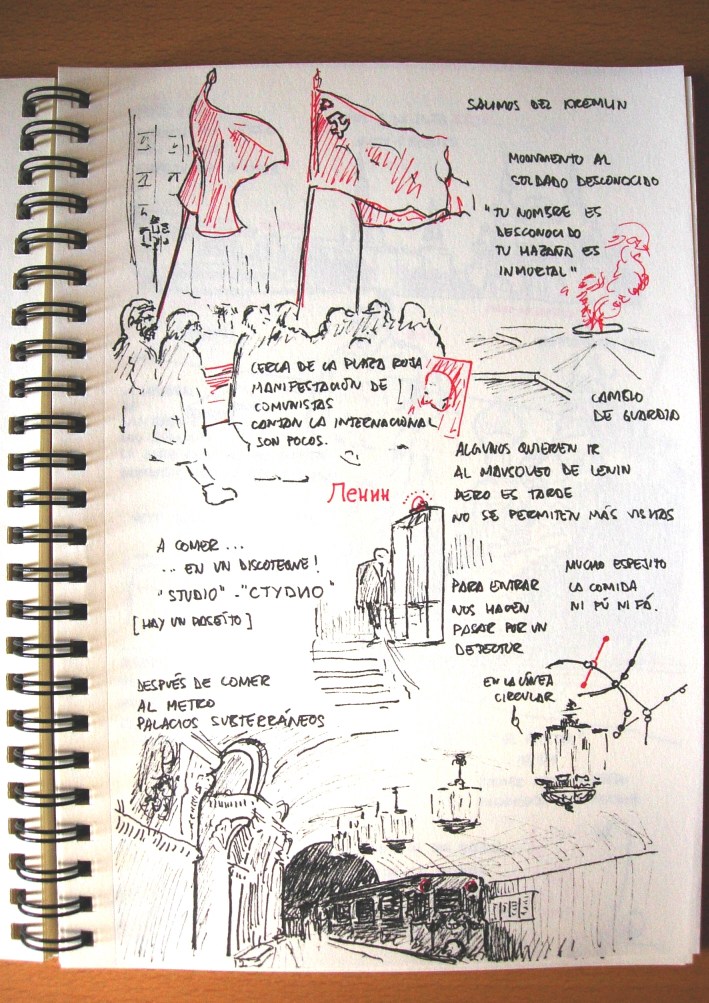 SALIMOS DEL KREMLIN
MONUMENTO AL
SOLDADO DESCONOCIDO
"TU NOMBRE ES
DESCONOCIDO
TU HAZAÑA ES
INMORTAL"
CERCA DE LA PLAZA ROJA
MANIFESTACIÓN DE
COMUNISTAS
CANTAN LA INTERNACIONAL
SON POCOS.
CAMBIO
DE GUARDIA
ALGUNOS QUIEREN IR
AL MAUSOLEO DE LENIN
PERO ES TARDE
NO SE PERMITEN MÁS VISITAS
Ленин
A COMER...
... EN UN DISCOTEQUE!
"STUDIO" - "СТУДИО"
[HAY UN PASEÍTO]
PARA ENTRAR
NOS HACEN
PASAR POR UN
DETECTOR
MUCHO ESPEJITO
LA COMIDA
NI FÚ NI FÁ.
DESPUÉS DE COMER
AL METRO
PALACIOS SUBTERRÁNEOS
EN LA LÍNEA
CIRCULAR